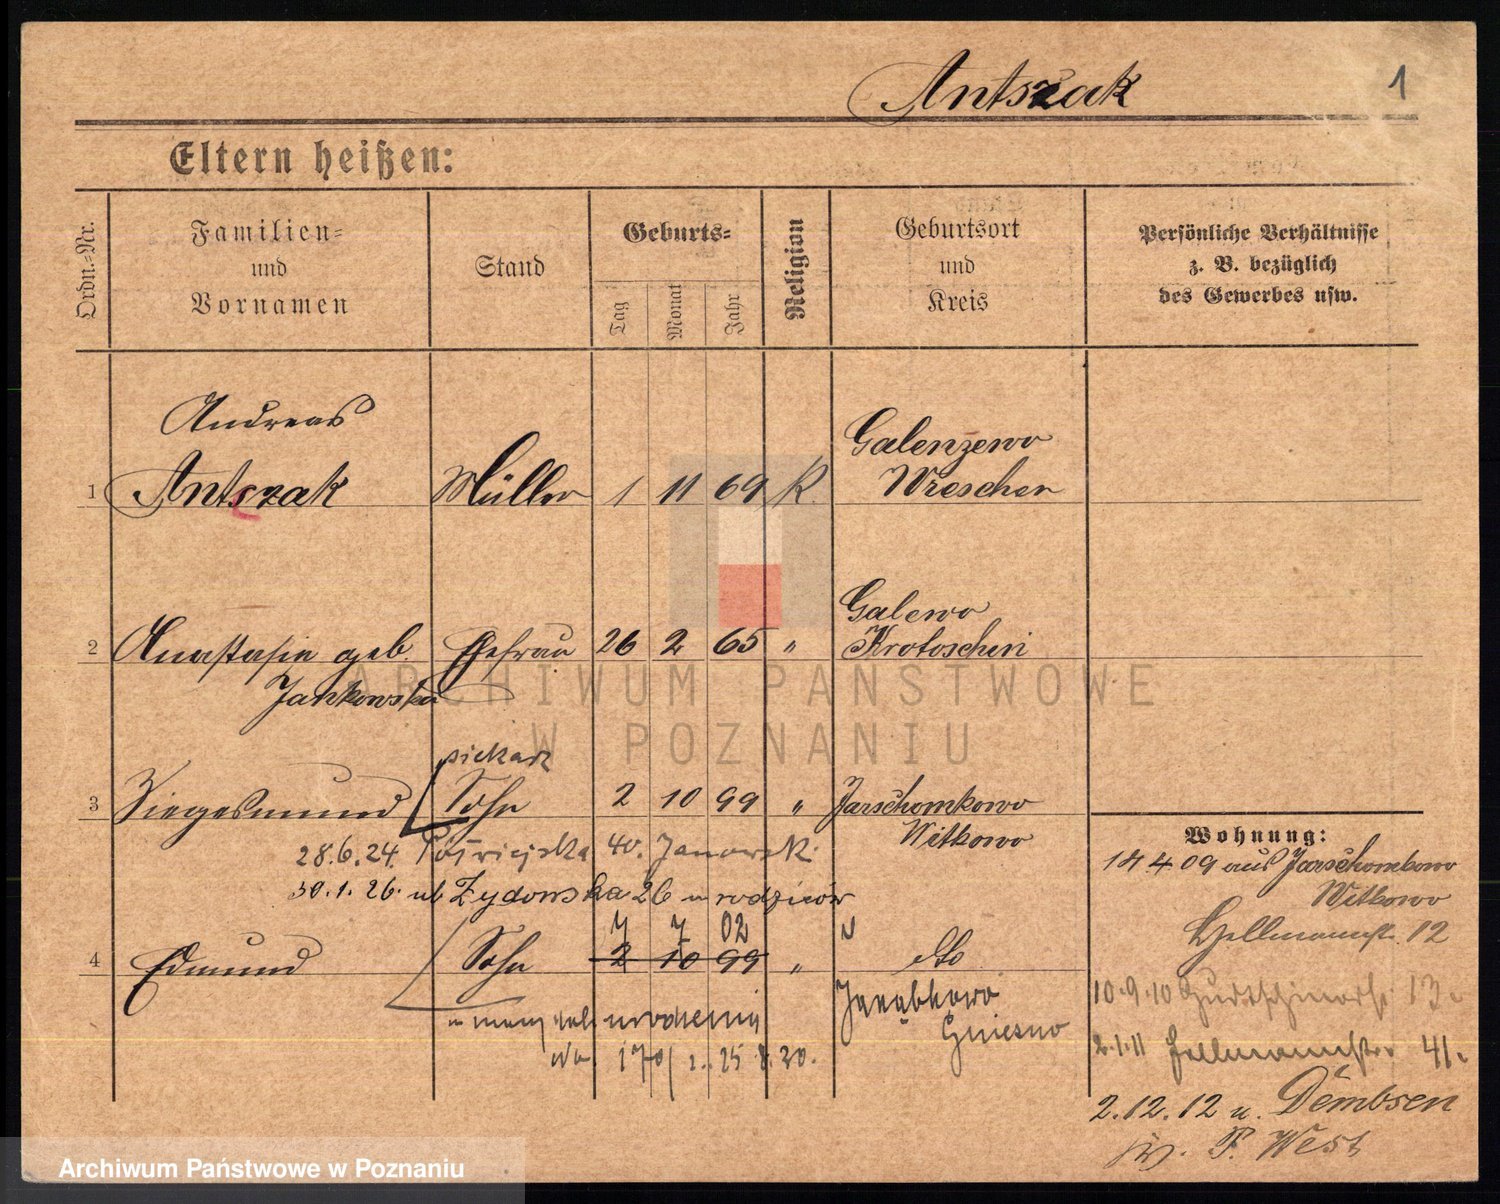 Antszak
1
Eltern heißen:
Ordn.-Nr.
Familien-
und
Vornamen
Stand
Geburts-
Tag
Monat
Jahr
Religion
Geburtsort
und
Kreis
Persönliche Verhältnisse
z. B. bezüglich
des Gewerbes usw.
Andreas
1 Antszak Müller 1 11 69 K.
Galenzewo
Wreschen
2 Anastasia geb. Ehefrau 26 2 65 "
Jankowska
Galewo
Krotoschin
piekarz
3 Siegesmund Sohn 2 10 99 "
Jarschomkowo
Witkowo
28.6.24. 40.
30.1.26. ul Żydowska 26 u rodziców
7 7 02 "
4 Edmund Sohn 2 10 99 " dto
Janubkowo
Gniesno
urodzenia
No. 170
Wohnung:
14 4 09 aus Jarschombowo
Witkowo
Hellmannstr. 12
10.9.10 13.
2.1.11 Hellmannstr. 41.
2.12.12 n. Dembsen
Kr. P. West
ARCHIWUM PAŃSTWOWE
W POZNANIU
Archiwum Państwowe w Poznaniu